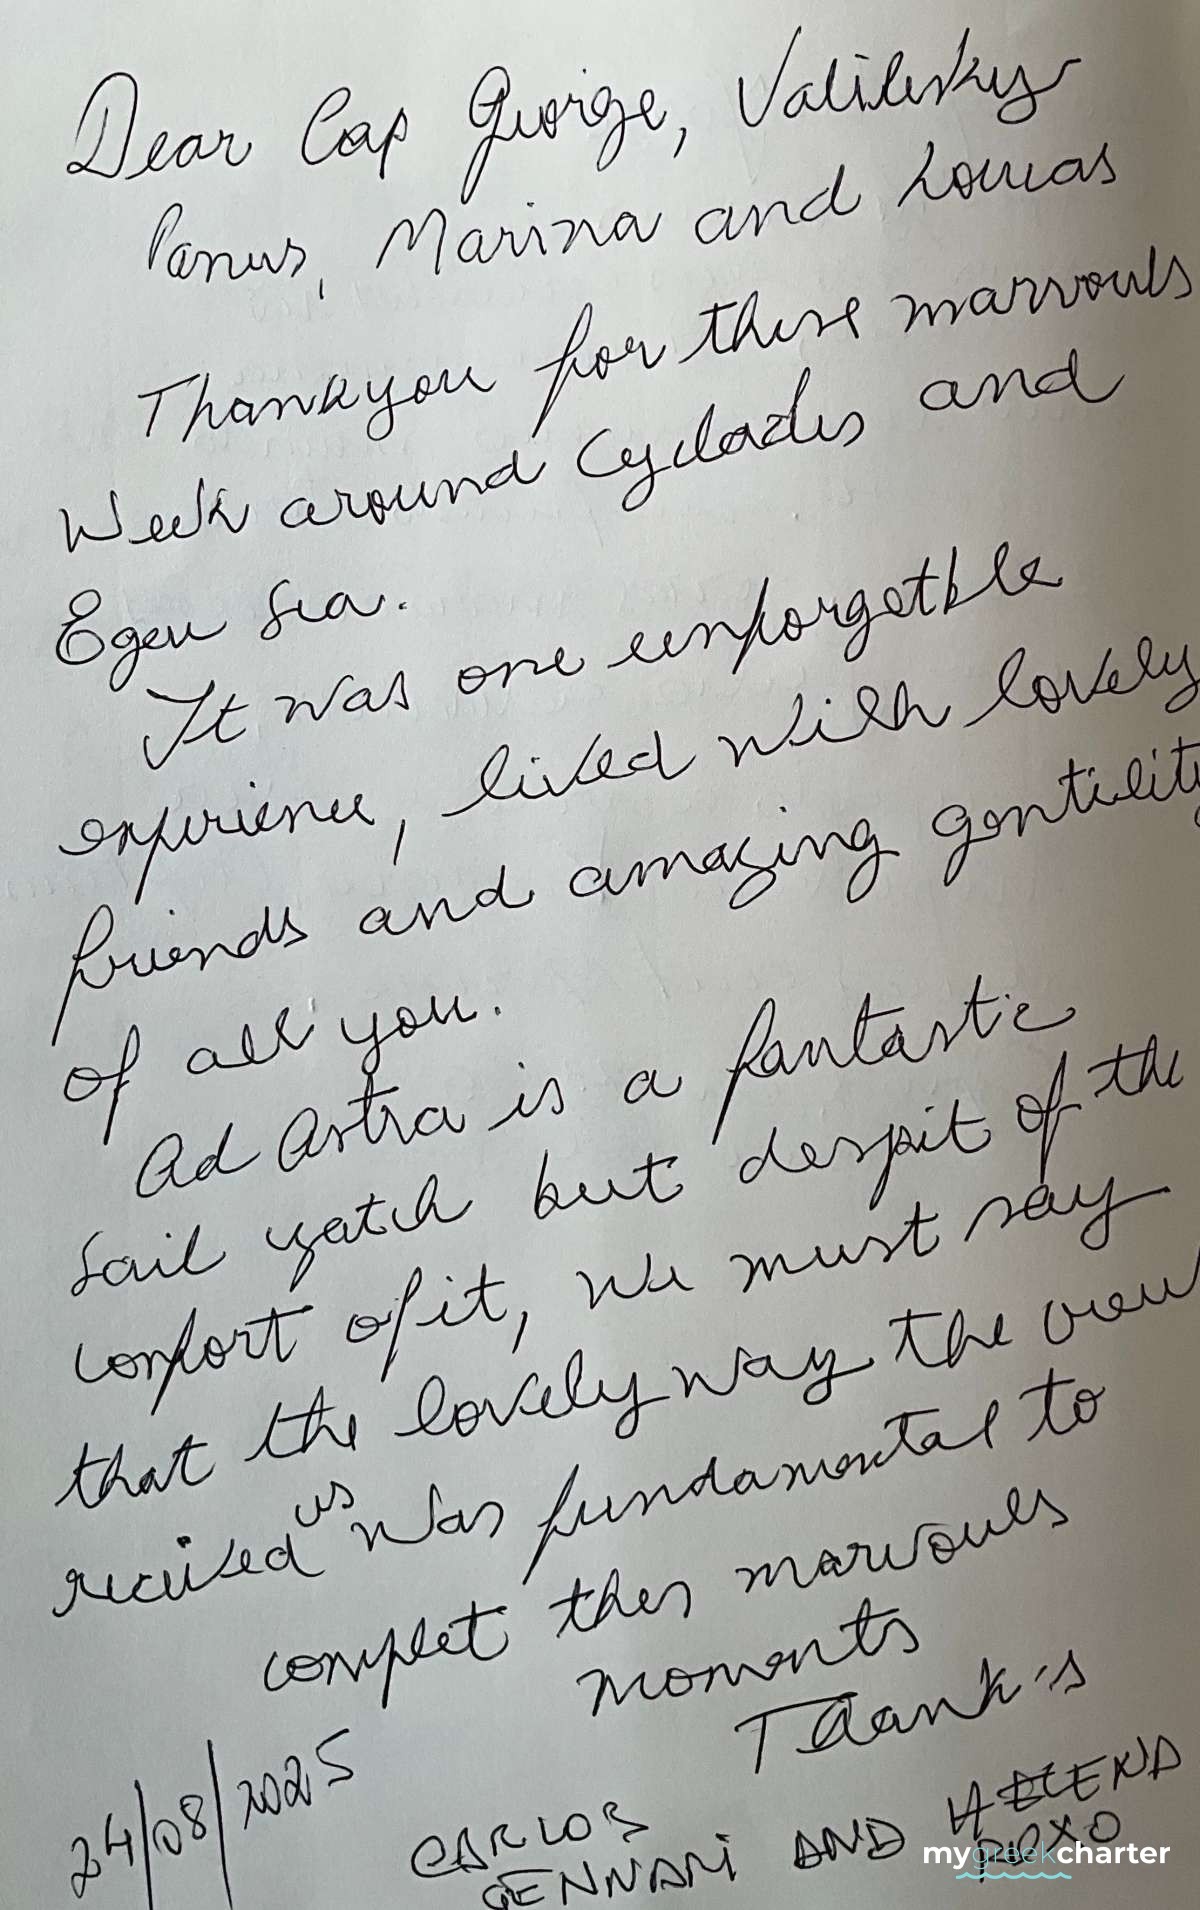 Dear Cap George, Valilisky
Panus, Marina and Loucas
Thankyou for these marvouls
Week around Cyclades and
Egeu Sea.
It was one unforgetble
experience, lived with lovely
friends and amazing gentility
of all you.
Ad Astra is a fantastic
sail yatch but despit of the
confort of it, we must say
that the lovely way the crew
recived us was fundamental to
complet thes marvouls
moments
Thank's
24/08/2025
CARLOS
GENNARI AND
ROXO
mygreekcharter